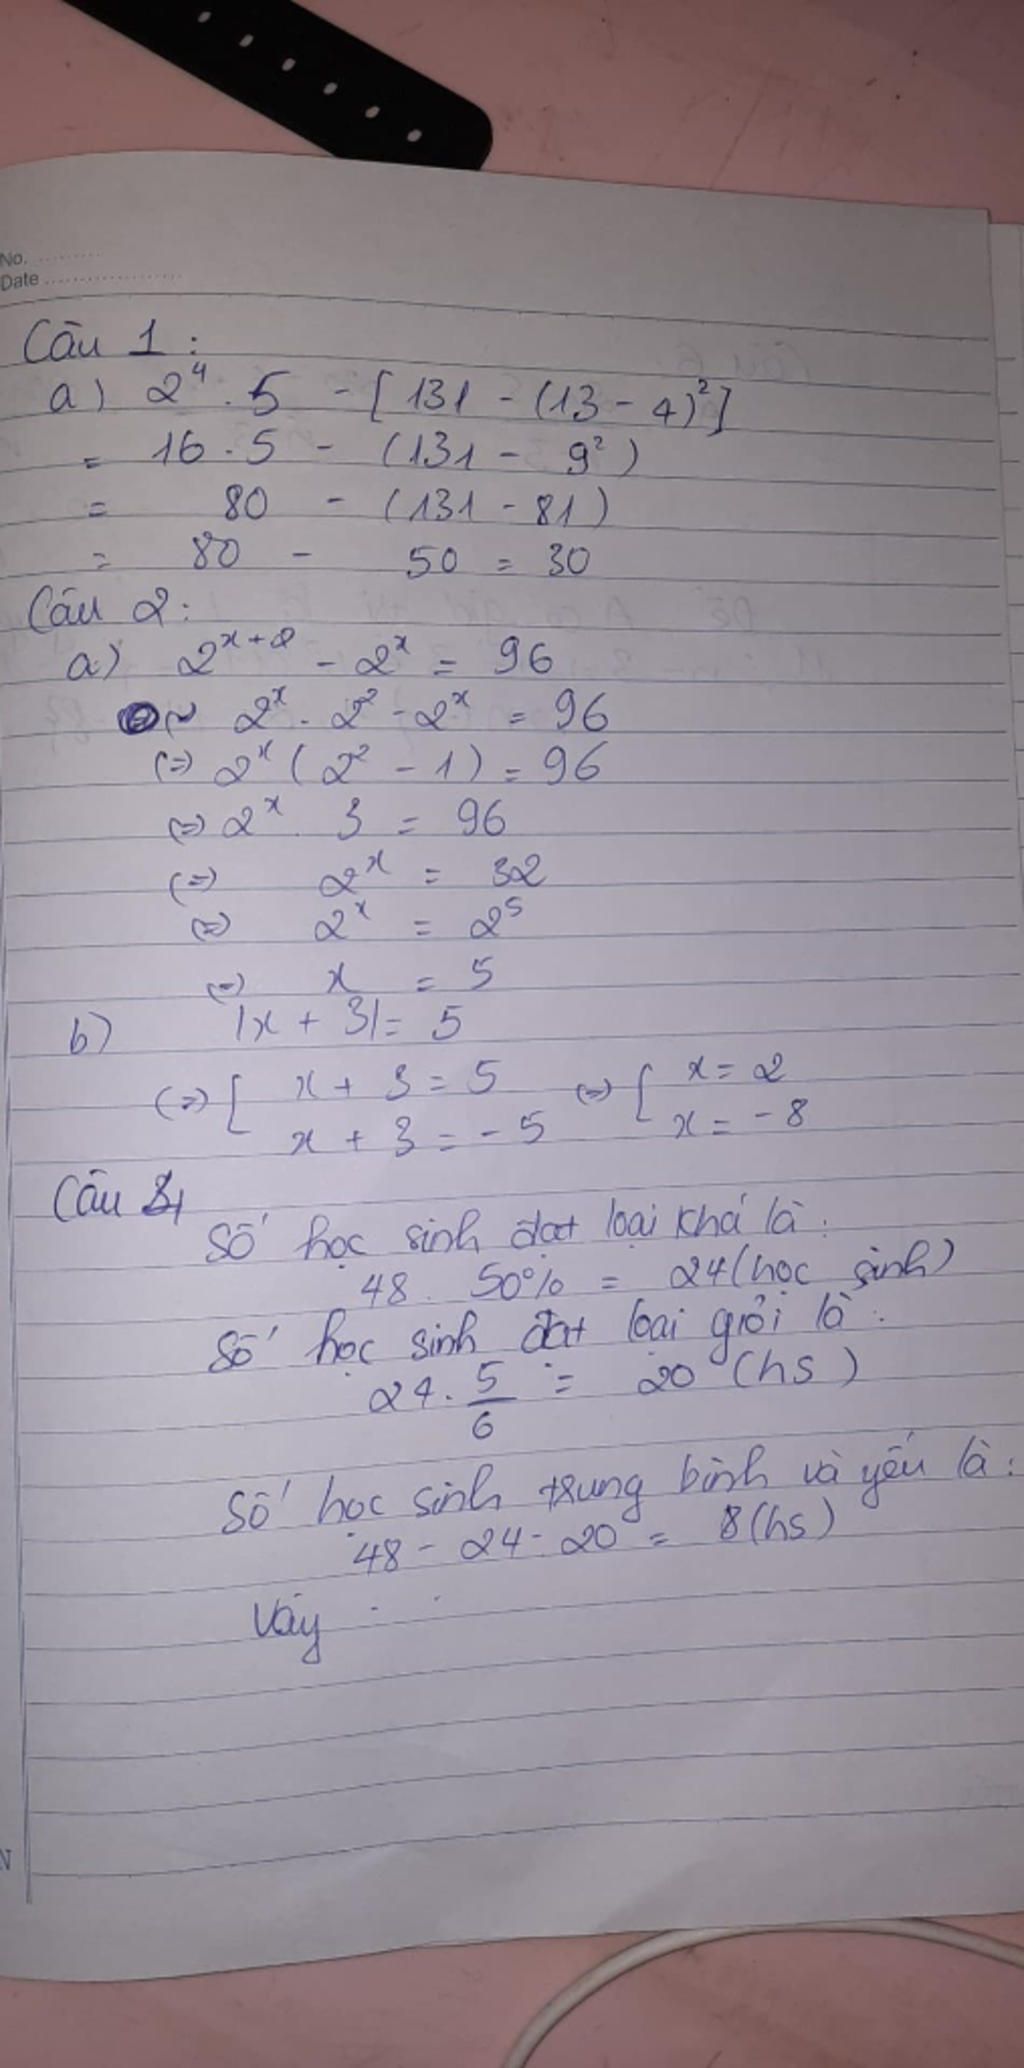 No. ..........
Date ....................
Câu 1 :
a) 2⁴ . 5 - [131 - (13 - 4)²]
= 16 . 5 - (131 - 9²)
= 80 - (131 - 81)
= 80 - 50 = 30
Câu 2:
a) 2ˣ⁺² - 2ˣ = 96
2ˣ . 2² - 2ˣ = 96
(=) 2ˣ (2² - 1) = 96
(=) 2ˣ . 3 = 96
(=) 2ˣ = 32
(=) 2ˣ = 2⁵
(=) x = 5
b) |x + 3| = 5
(=) [ x + 3 = 5 (=) [ x = 2
x + 3 = -5 x = -8
Câu
Số học sinh đạt loại khá là :
48 . 50% = 24 (học sinh)
Số học sinh đạt loại giỏi là :
24 . 5/6 = 20 (hs)
Số học sinh trung bình và yếu là :
48 - 24 - 20 = 8 (hs)
Vậy . .
N